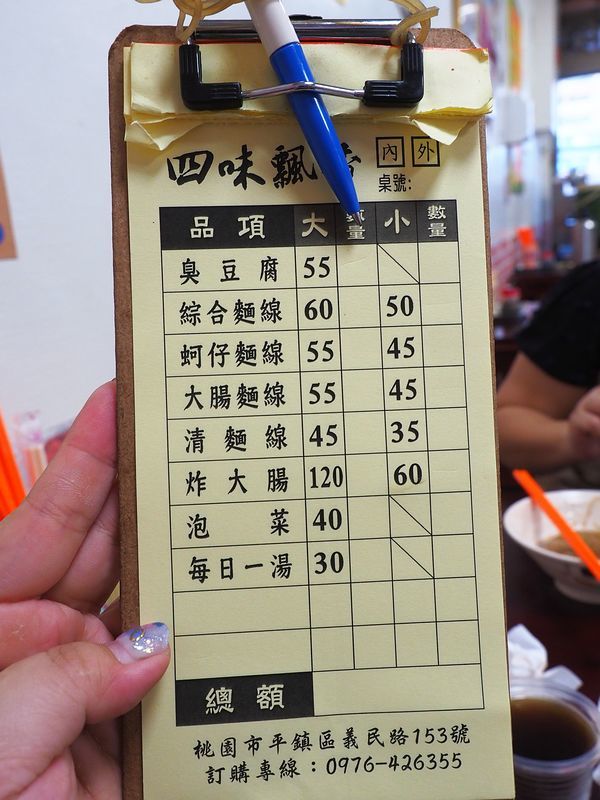 四味飄香 內 外
桌號:
品項 大 數量 小 數量
臭豆腐 55
綜合麵線 60 50
蚵仔麵線 55 45
大腸麵線 55 45
清麵線 45 35
炸大腸 120 60
泡菜 40
每日一湯 30
總額
桃園市平鎮區義民路153號
訂購專線：0976-426355